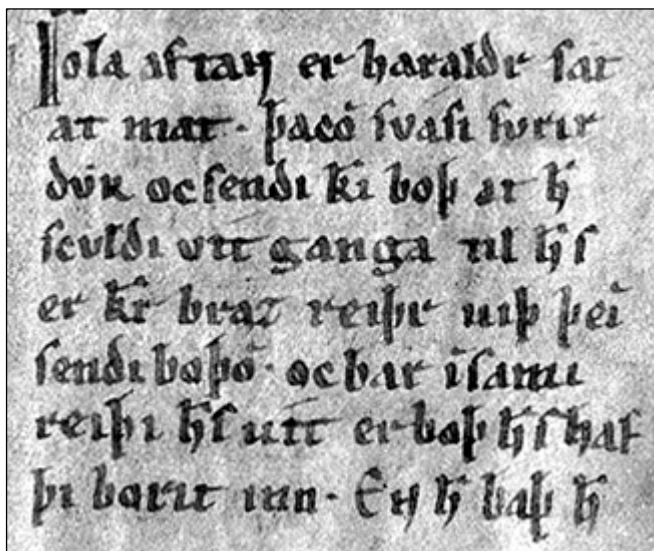 Iola aftaɴ er haraldr ſat
at mat · þacṓ ſvaſi fyrir
dyʀ ocſendi k̄i boþ at h̄
ſcyldi vtt ganga til h̄ſ
er k̄r braz reiþr uiþ þeī
ſendi boþō · ocbar īſami
reiþi h̄ſ utt er boþ h̄ſ haf
þi borit inn · Eɴ h̄ baþ h̄